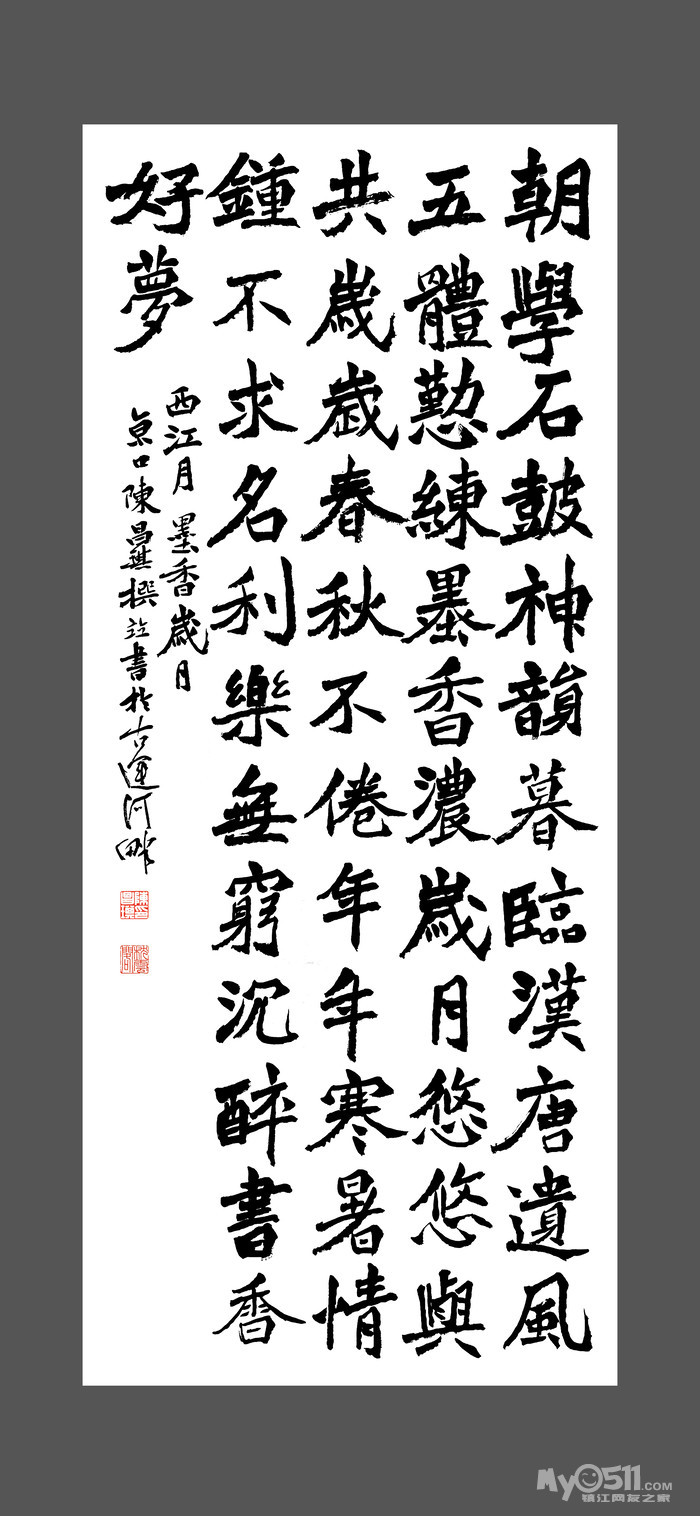 朝學石皷神韻暮臨漢唐遺風
五體懃練墨香濃歲月悠悠與
共歲歲春秋不倦年年寒暑情
鍾不求名利樂無窮沉醉書香
好夢
西江月 墨香歲月
京口陳昌撰並書於古運河畔
MyO511.COM
镇江网友之家